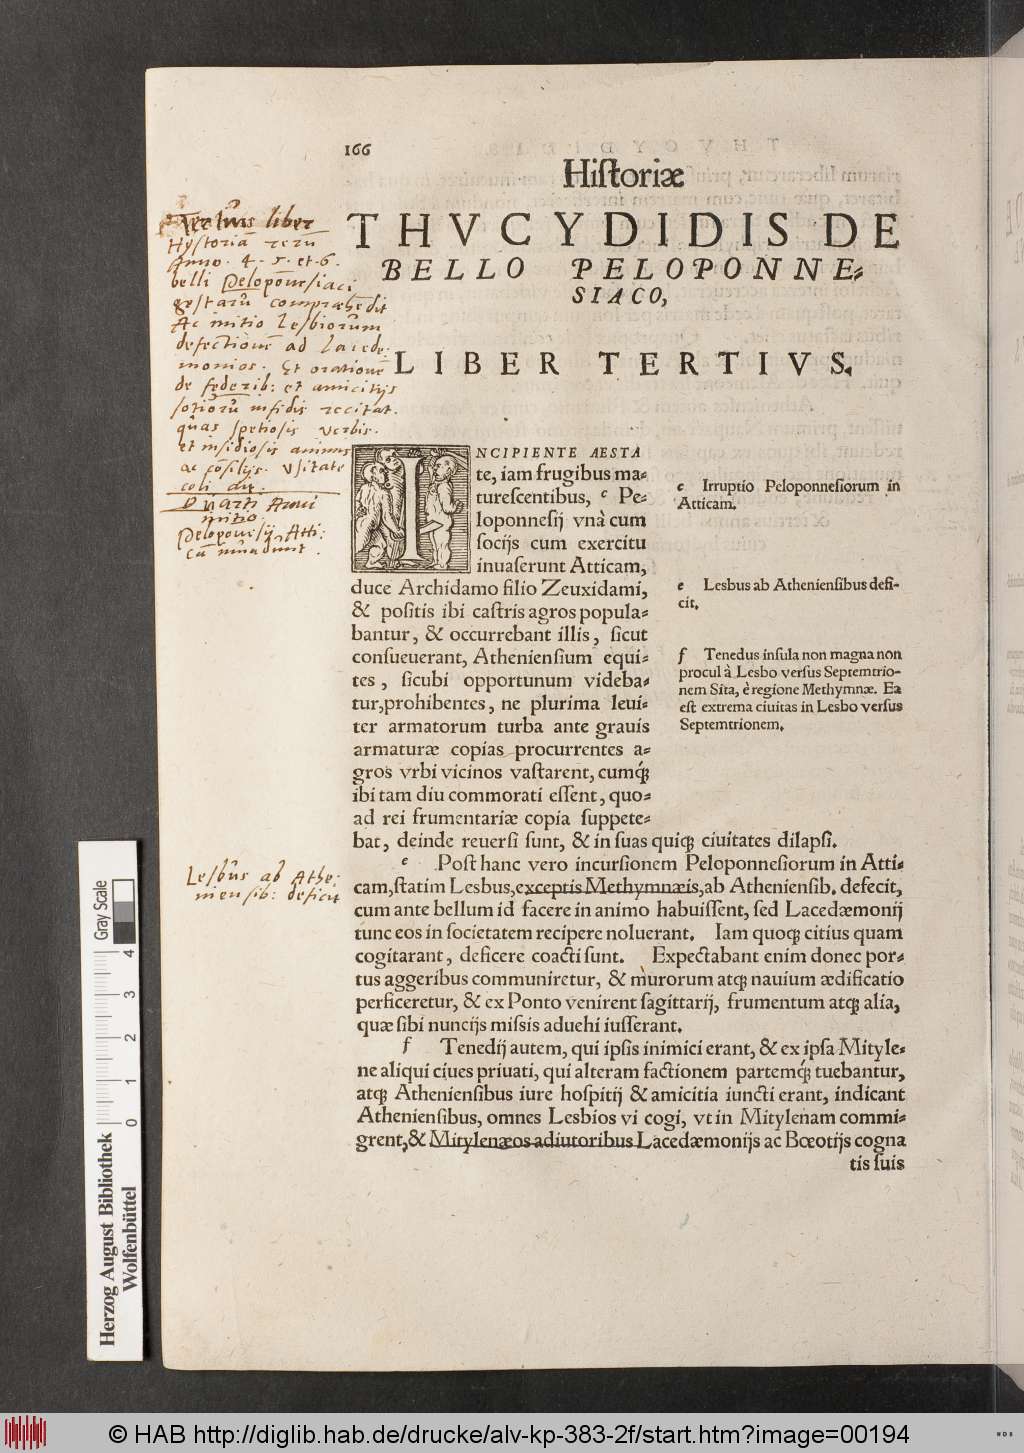 166
Hiſtoriæ
THVCYDIDIS DE
BELLO PELOPONNE⸗
SIACO,
LIBER TERTIVS.
Tertius liber
Hyſtoriā rerū
Anno. 4. 5. et. 6.
belli Pelopoñeſiaci
geſtarū compræhēdit
Ac initio Leſbiorum
defectionē ad Lacede
monios. Et orationē
de federib: et amicitijs
ſotiorū infidis recitat.
quas ſpetioſis verbis.
et inſidioſis animis
ac coſilijs. vſitate
coli
Quarti Anni
initio
Peloponeſij Atti:
cā
INCIPIENTE AESTA
te, iam frugibus ma⸗
tureſcentibus, e Pe⸗
loponneſij vnà cum
ſocijs cum exercitu
inuaſerunt Atticam,
duce Archidamo filio Zeuxidami,
& poſitis ibi caſtris agros popula⸗
bantur, & occurrebant illis, ſicut
conſueuerant, Athenienſium equi⸗
tes, ſicubi opportunum videba⸗
tur,prohibentes, ne plurima leui⸗
ter armatorum turba ante grauis
armaturæ copias procurrentes a⸗
gros vrbi vicinos vaſtarent, cumq́;
ibi tam diu commorati eſſent, quo⸗
ad rei frumentariæ copia ſuppete⸗
bat, deinde reuerſi ſunt, & in ſuas quiq; ciuitates dilapſi.
e Irruptio Peloponneſiorum in
Atticam.
e Lesbus ab Athenienſibus defi-
cit.
f Tenedus inſula non magna non
procul à Lesbo verſus Septemtrio-
nem Sita, è regione Methymnæ. Ea
eſt extrema ciuitas in Lesbo verſus
Septemtrionem.
Leſbus ab Athe:
nienſib: deficit
e Poſt hanc vero incurſionem Peloponneſiorum in Atti⸗
cam,ſtatim Lesbus,exceptis Methymnæis,ab Athenienſib. defecit,
cum ante bellum id facere in animo habuiſſent, ſed Lacedæmonij
tunc eos in ſocietatem recipere noluerant. Iam quoq; citius quam
cogitarant, deficere coacti ſunt. Expectabant enim donec por⸗
tus aggeribus communiretur, & murorum atq; nauium ædificatio
perficeretur, & ex Ponto venirent ſagittarij, frumentum atq; alia,
quæ ſibi nuncijs miſsis aduehi iuſſerant.
f Tenedij autem, qui ipſis inimici erant, & ex ipſa Mityle⸗
ne aliqui ciues priuati, qui alteram factionem partemq́; tuebantur,
atq; Athenienſibus iure hoſpitij & amicitia iuncti erant, indicant
Athenienſibus, omnes Lesbios vi cogi, vt in Mitylenam commi⸗
grent,& Mitylenæos adiutoribus Lacedæmonijs ac Bœotijs cogna
tis ſuis
Herzog August Bibliothek
Wolfenbüttel
Gray Scale
0 1 2 3 4
© HAB http://diglib.hab.de/drucke/alv-kp-383-2f/start.htm?image=00194